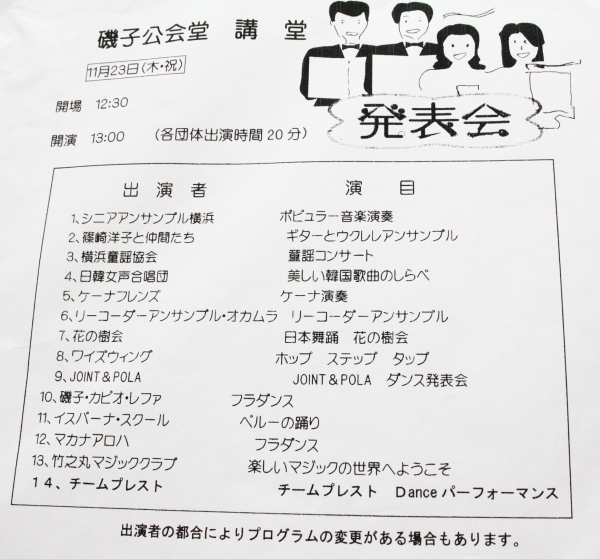 磯子公会堂 講堂
11月23日(木・祝)
開場 12:30
開演 13:00 (各団体出演時間20分)
発表会
出演者 演目
1、シニアアンサンブル横浜 ポピュラー音楽演奏
2、篠崎洋子と仲間たち ギターとウクレレアンサンブル
3、横浜童謡協会 童謡コンサート
4、日韓女声合唱団 美しい韓国歌曲のしらべ
5、ケーナフレンズ ケーナ演奏
6、リーコーダーアンサンブル・オカムラ リーコーダーアンサンブル
7、花の樹会 日本舞踊 花の樹会
8、ワイズウィング ホップ ステップ タップ
9、JOINT&POLA JOINT&POLA ダンス発表会
10、磯子・カピオ・レファ フラダンス
11、イスパーナ・スクール ペルーの踊り
12、マカナアロハ フラダンス
13、竹之丸マジッククラブ 楽しいマジックの世界へようこそ
14、チームプレスト チームプレスト Danceパーフォーマンス
出演者の都合によりプログラムの変更がある場合もあります。